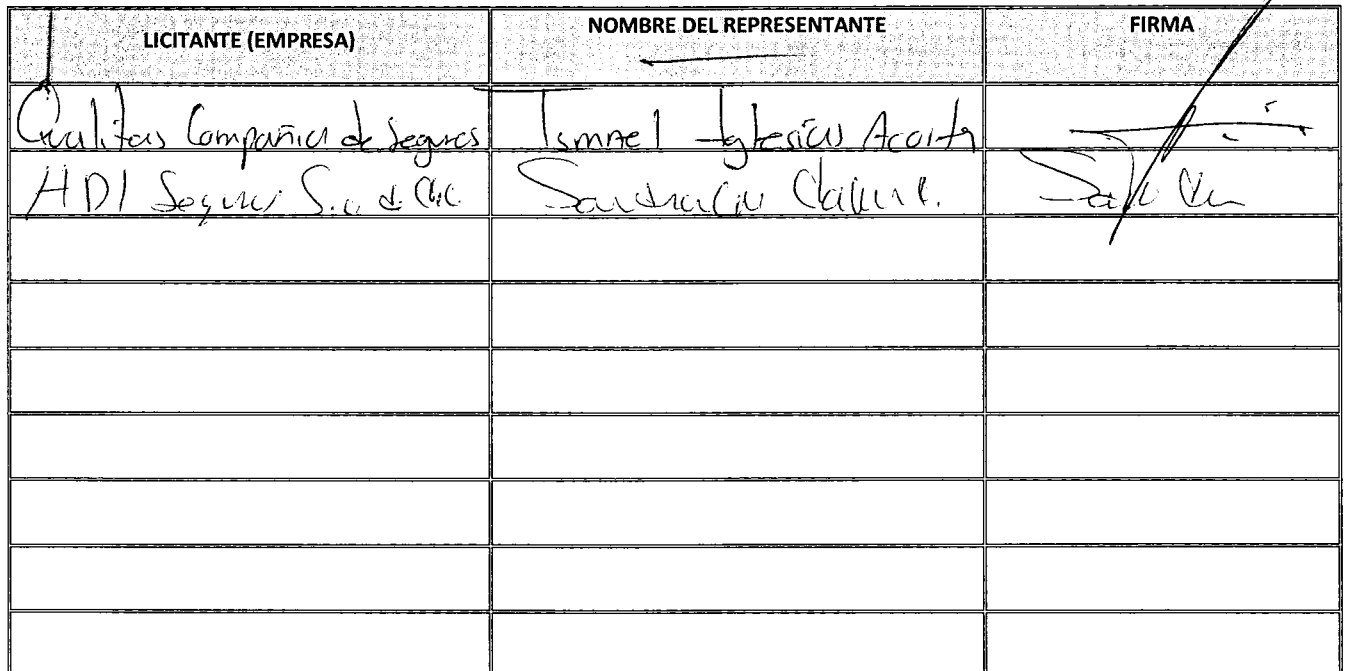 LICITANTE (EMPRESA) NOMBRE DEL REPRESENTANTE FIRMA
Qualitas Compañia de Seguros Ismael Iglesias Acosta
HDI Seguros S.A. de C.V.